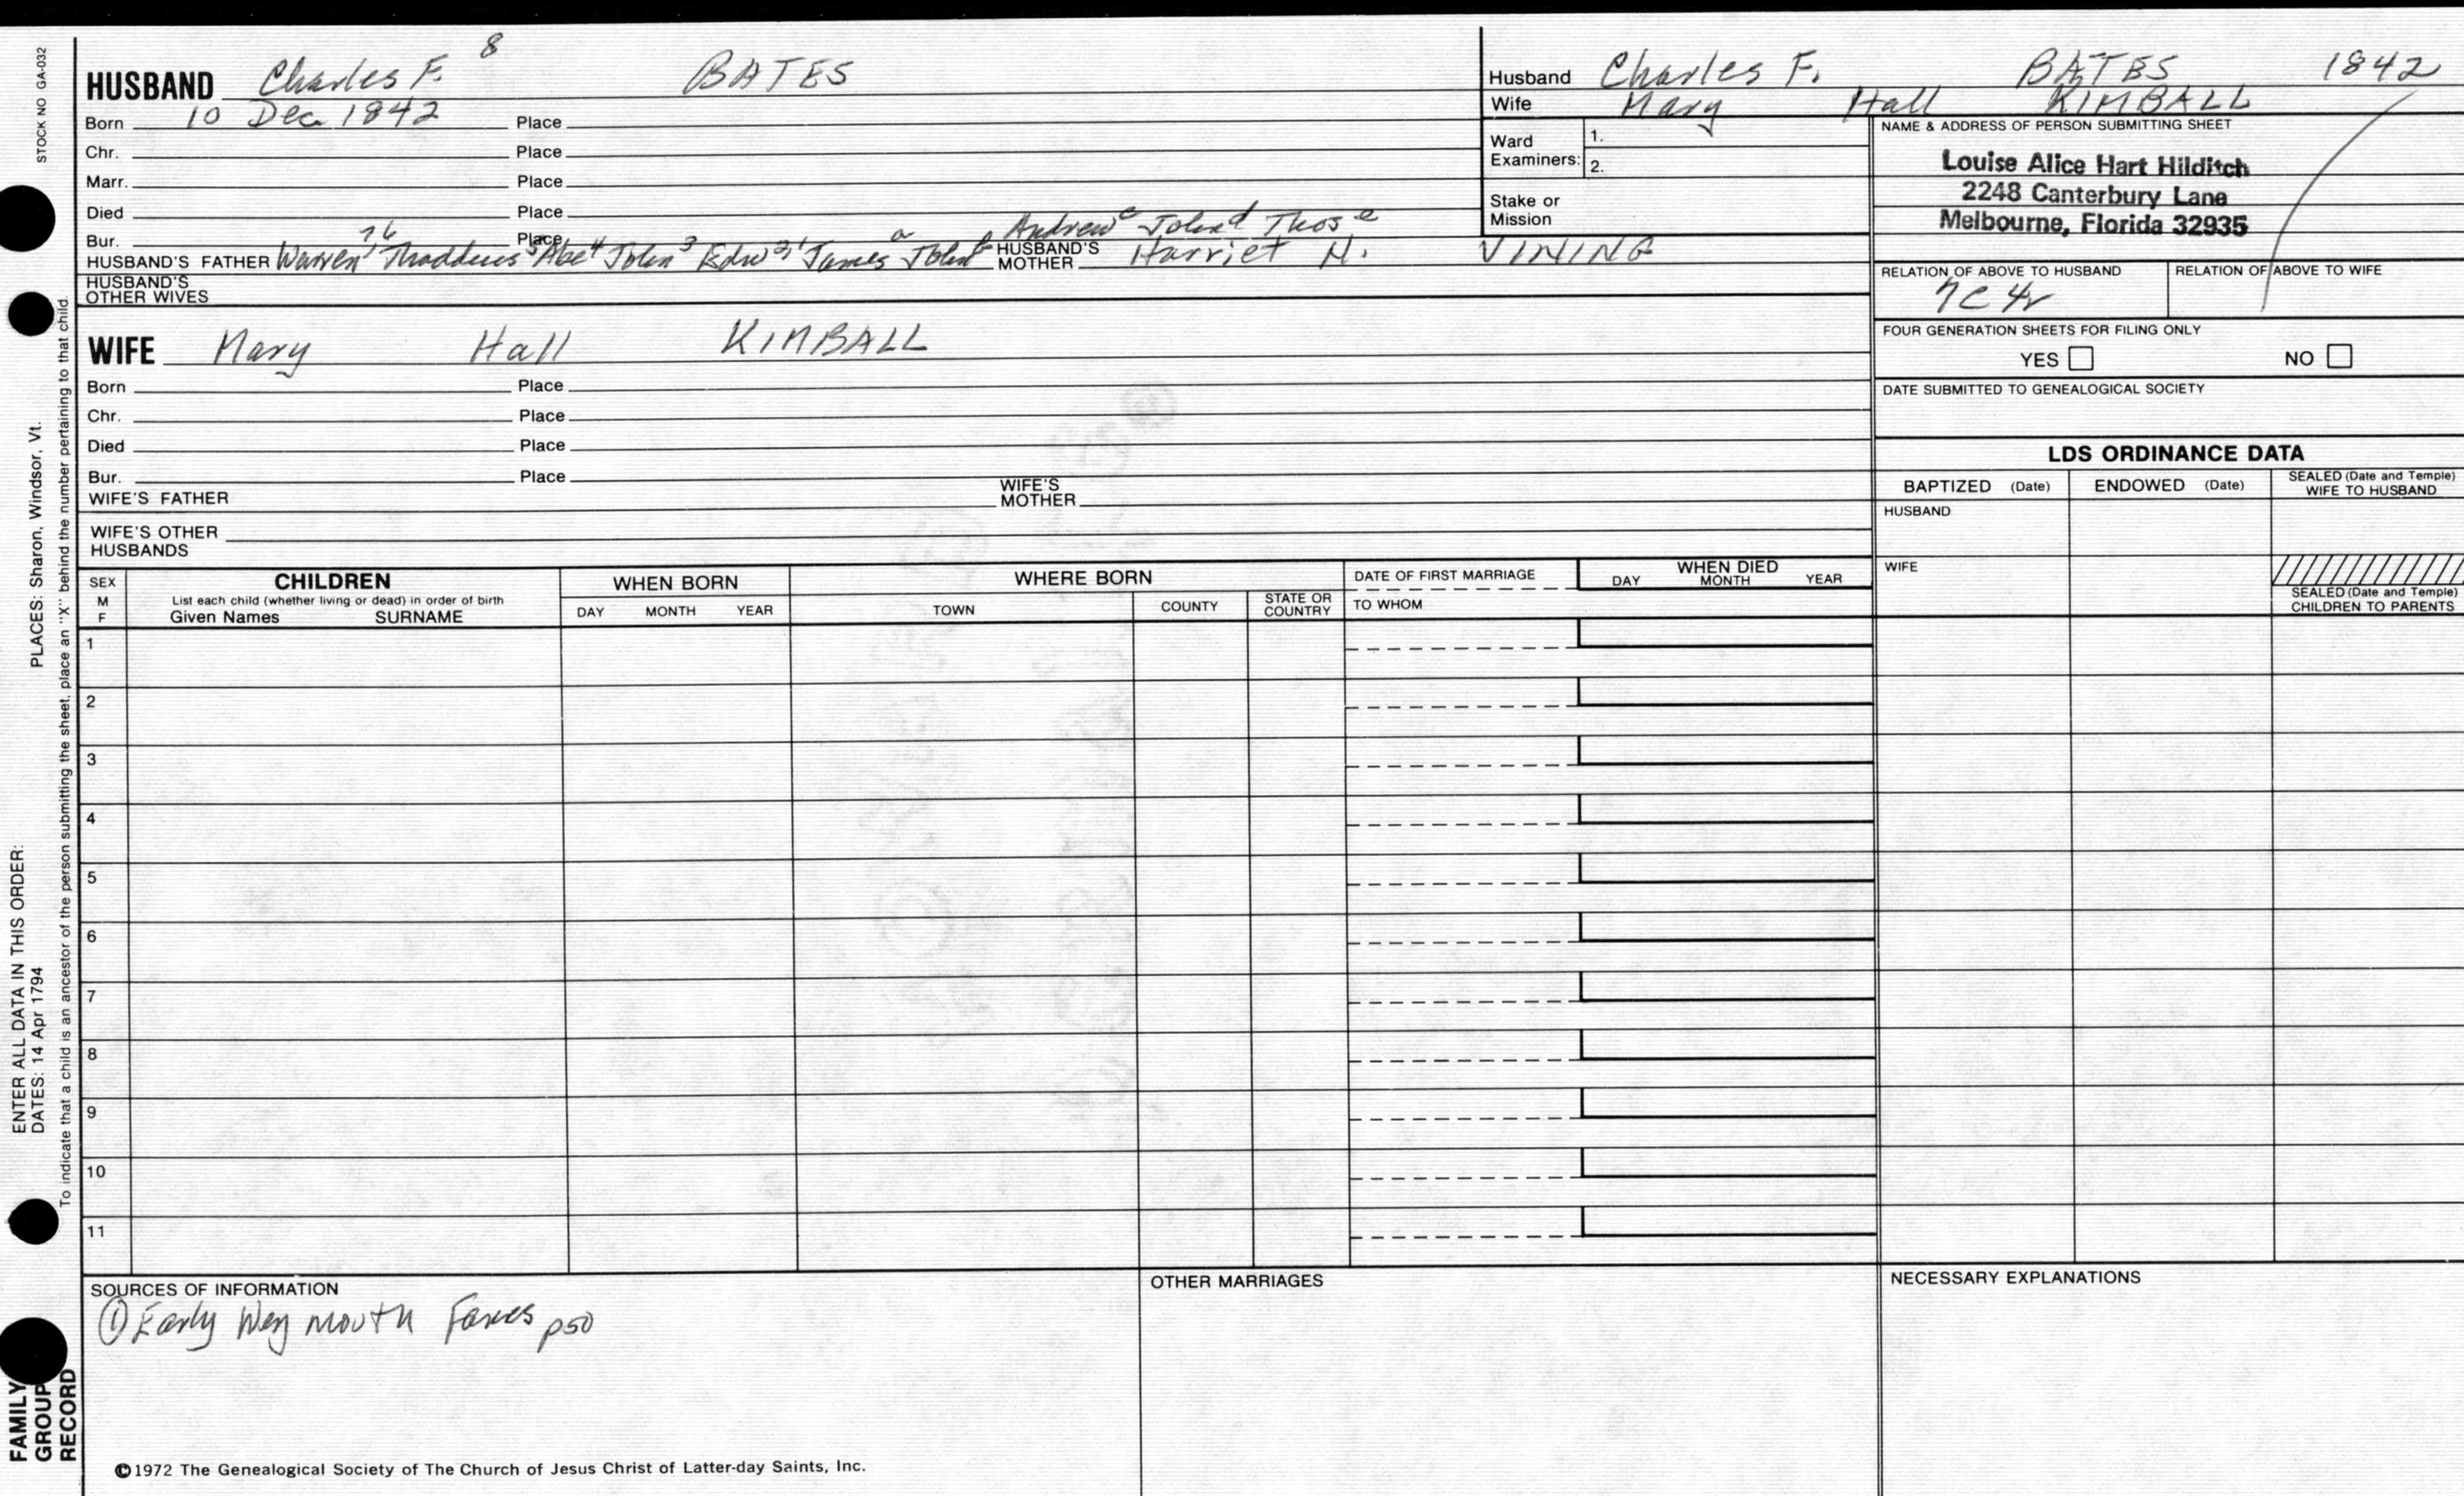 STOCK NO GA-032
HUSBAND Charles F. 8 BATES
Born 10 Dec 1842 Place
Chr. Place
Marr. Place
Died Place
Bur. Place
Andrew c John d Thos e
HUSBAND'S FATHER Warren 7 Thaddeus 6 Abe 5 John 4 Edw 3 James a John b HUSBAND'S MOTHER Harriet N. VINING
HUSBAND'S OTHER WIVES
WIFE Mary Hall KIMBALL
Born Place
Chr. Place
Died Place
Bur. Place
WIFE'S FATHER WIFE'S MOTHER
WIFE'S OTHER HUSBANDS
Husband Charles F. BATES 1842
Wife Mary Hall KIMBALL
Ward Examiners: 1. 2.
Stake or Mission
NAME & ADDRESS OF PERSON SUBMITTING SHEET
Louise Alice Hart Hilditch
2248 Canterbury Lane
Melbourne, Florida 32935
RELATION OF ABOVE TO HUSBAND RELATION OF ABOVE TO WIFE
7C 4r
FOUR GENERATION SHEETS FOR FILING ONLY
YES NO
DATE SUBMITTED TO GENEALOGICAL SOCIETY
LDS ORDINANCE DATA
BAPTIZED (Date) ENDOWED (Date) SEALED (Date and Temple) WIFE TO HUSBAND
HUSBAND
WIFE
SEALED (Date and Temple) CHILDREN TO PARENTS
SEX M F
CHILDREN
List each child (whether living or dead) in order of birth
Given Names SURNAME
WHEN BORN
DAY MONTH YEAR
WHERE BORN
TOWN COUNTY STATE OR COUNTRY
DATE OF FIRST MARRIAGE
TO WHOM
WHEN DIED
DAY MONTH YEAR
1
2
3
4
5
6
7
8
9
10
11
SOURCES OF INFORMATION
① Early Weymouth Fames p50
OTHER MARRIAGES
NECESSARY EXPLANATIONS
©1972 The Genealogical Society of The Church of Jesus Christ of Latter-day Saints, Inc.
FAMILY GROUP RECORD
ENTER ALL DATA IN THIS ORDER:
DATES: 14 Apr 1794
PLACES: Sharon, Windsor, Vt.
To indicate that a child is an ancestor of the person submitting the sheet, place an "X" behind the number pertaining to that child.